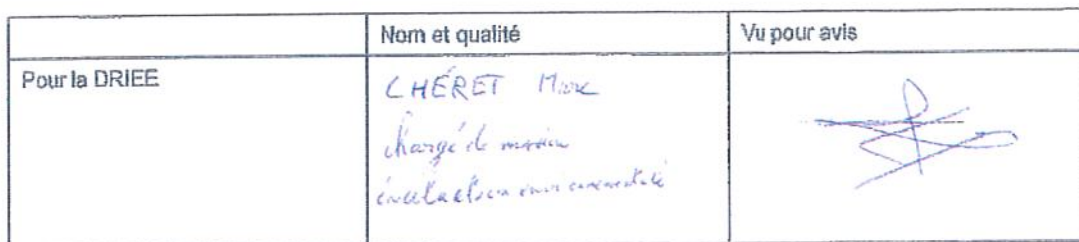 Nom et qualité
Vu pour avis
Pour la DRIEE
CHÉRET Marc
chargé de mission
évaluation environnementale